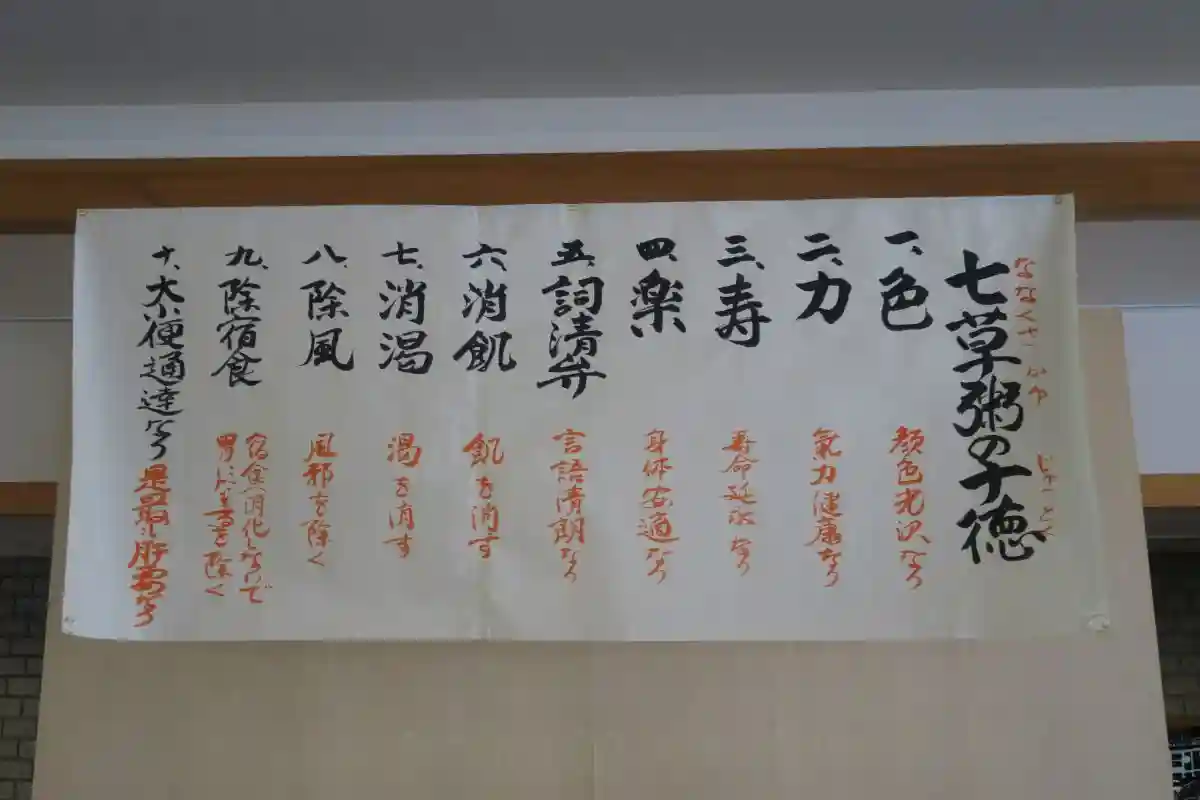 ななくさ かゆ じゅっとく
七草粥の十徳
一、色
顔色光沢なり
二、力
氣力健康なり
三、寿
寿命延改なり
四、楽
身体安適なり
五、詞清弁
言語清朗なり
六、消飢
飢を消す
七、消渇
渇を消す
八、除風
風邪を除く
九、除宿食
宿食消化しないで
胃にを除く
十、大小便通達なり
是最も肝要なり